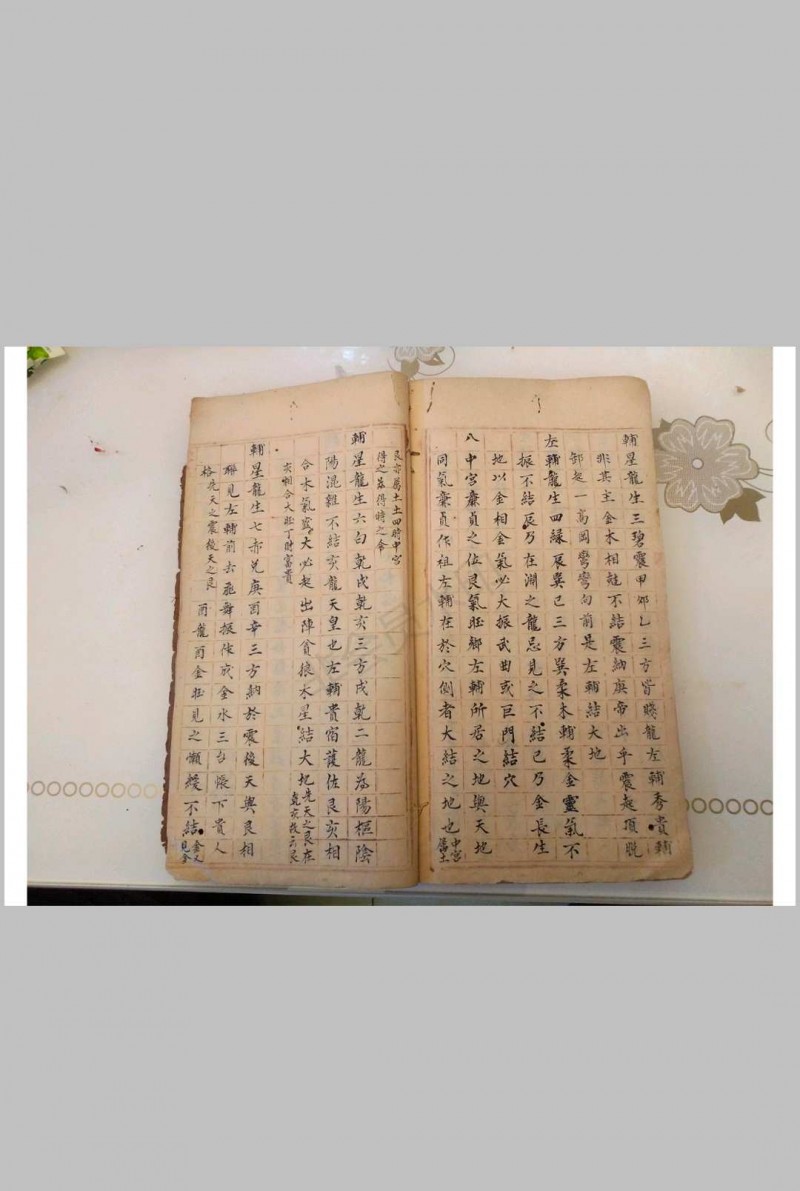 輔星龍生三碧震甲夘乙三方皆賤龍左輔秀貴輔
非其主金木相尅不結震納庚帝出乎震起頂脫
卸起一高岡彎彎向前是左輔結大地
左輔龍生四緑辰巽巳三方巽柔木輔柔金靈氣不
振不結辰乃在淵之龍忌見之不結巳乃金長生
地以金相金氣必大振武曲或巨門結穴
八中宮亷貞之位艮氣旺鄉左輔所居之地與天地
同氣亷貞作祖左輔在於穴側者大結之地也
中宮
屬土
艮亦属土土四時中宮
得之為得時之令
輔星龍生六白乾戌乾亥三方戌乾二龍為陽樞陰
陽混雜不結亥龍天皇也左輔貴宿護佐艮亥相
合木氣盛大必起出陣貪狼木星結大地
先天之艮在
乾亥故云艮
亥相合大旺丁財富貴
輔星龍生七赤兌庚酉辛三方納於震後天與艮相
聯見左輔前去飛舞振作成金水三台帳下貴人
格先天之震後天之艮 酉龍酉金旺見之懶緩不結
金又
見金